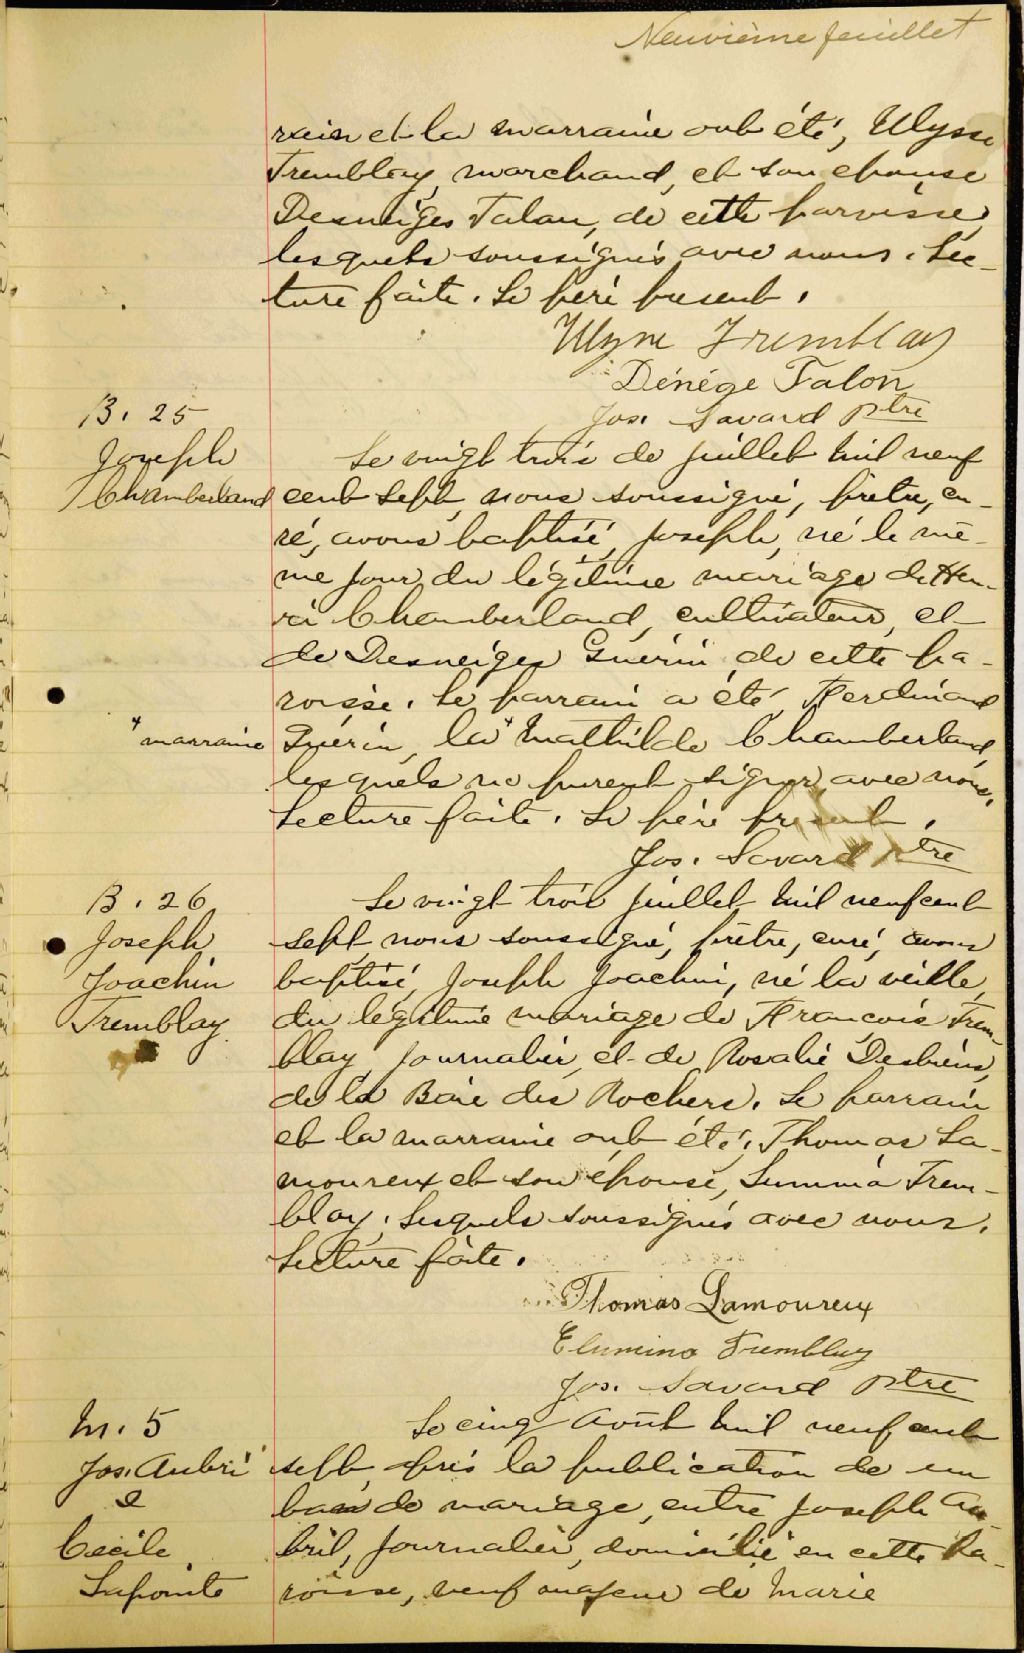 Neuvième feuillet
rain et la marraine ont été, Ulysse
Tremblay, marchand, et son épouse
Desneiges Talon, de cette paroisse,
lesquels soussignés avec nous. Lec-
ture faite. Le père présent.
Ulysse Tremblay
Dénége Talon
Jos. Savard ptre
B. 25
Joseph
Chamberland
Le vingt trois de juillet mil neuf
cent sept, nous soussigné, prêtre, cu-
ré, avons baptisé, Joseph, né le mê-
me jour, du légitime mariage de Hen-
ri Chamberland, cultivateur, et
de Desneiges Guérin de cette pa-
roisse. Le parrain a été, Ferdinand
+ marraine
Guérin, la + Mathilde Chamberland,
lesquels ne purent signer avec nous.
Lecture faite. Le père présent.
Jos. Savard ptre
B. 26
Joseph
Joachin
Tremblay
Le vingt trois juillet mil neuf cent
sept nous soussigné, prêtre, curé, avons
baptisé, Joseph Joachin, né la veille,
du légitime mariage de Francois Trem-
blay, journalier, et de Rosalie Desbiens,
de la Baie des Rochers. Le parrain
et la marraine ont été, Thomas La-
moureux et son épouse, Lumina Trem-
blay. Lesquels soussignés avec nous.
Lecture faite.
Thomas Lamoureux
Elumina Tremblay
Jos. Savard ptre
M. 5
Jos. Aubri
&
Cecile
Lapointe
Le cinq Août mil neuf cent
sept, après la publication de un
ban de mariage, entre Joseph Au-
bril, journalier, domicilié en cette Pa-
roisse, veuf majeur de Marie